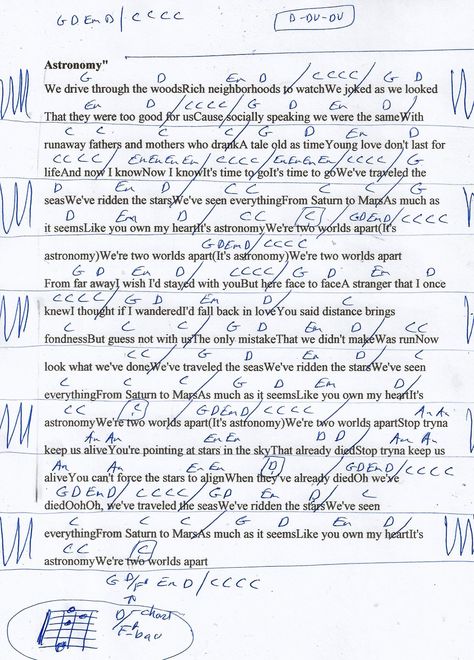 G D Em D / C C C C
D-DU-DU
Astronomy"
G D Em D / C C C C / G D
We drive through the woodsRich neighborhoods to watchWe joked as we looked
Em D / C C C C / G D Em D
That they were too good for usCause socially speaking we were the sameWith
C C C C G D Em D
runaway fathers and mothers who drankA tale old as timeYoung love don't last for
C C C C / Em Em Em Em / C C C C / Em Em Em Em / C C C C / G
lifeAnd now I knowNow I knowIt's time to goIt's time to goWe've traveled the
D Em D C C C C G
seasWe've ridden the starsWe've seen everythingFrom Saturn to MarsAs much as
D Em D C C C / G D Em D / C C C C
it seemsLike you own my heartIt's astronomyWe're two worlds apart(It's
G D Em D / C C C C
astronomy)We're two worlds apart(It's astronomy)We're two worlds apart
G D Em D C C C C / G D Em D
From far awayI wish I'd stayed with youBut here face to faceA stranger that I once
C C C C / G D Em D C
knewI thought if I wanderedI'd fall back in loveYou said distance brings
C C C G D Em D C C
fondnessBut guess not with usThe only mistakeThat we didn't makeWas runNow
C C G D Em D C
look what we've doneWe've traveled the seasWe've ridden the starsWe've seen
C C C G D Em D
everythingFrom Saturn to MarsAs much as it seemsLike you own my heartIt's
C C C G D Em D / C C C C Am Am
astronomyWe're two worlds apart(It's astronomy)We're two worlds apartStop tryna
Am Am Em Em D D Am Am
keep us aliveYou're pointing at stars in the skyThat already diedStop tryna keep us
Am Am Em Em D G D Em D / C C C C
aliveYou can't force the stars to alignWhen they've already diedOh we've
G D Em D / C C C C / G D Em D C
diedOohOh, we've traveled the seasWe've ridden the starsWe've seen
C C C G D Em D
everythingFrom Saturn to MarsAs much as it seemsLike you own my heartIt's
C C C
astronomyWe're two worlds apart
G D/F# Em D / C C C C
D/ chart
F#